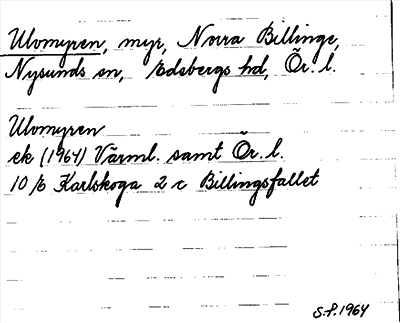 Ulvmyren, myr, Norra Billinge,
Nysunds sn, Edsbergs hd, Ör. l.
Ulvmyren
ek (1964) Värml. samt Ör. l.
10 E Karlskoga 2 c Billingsfallet
S-P. 1964